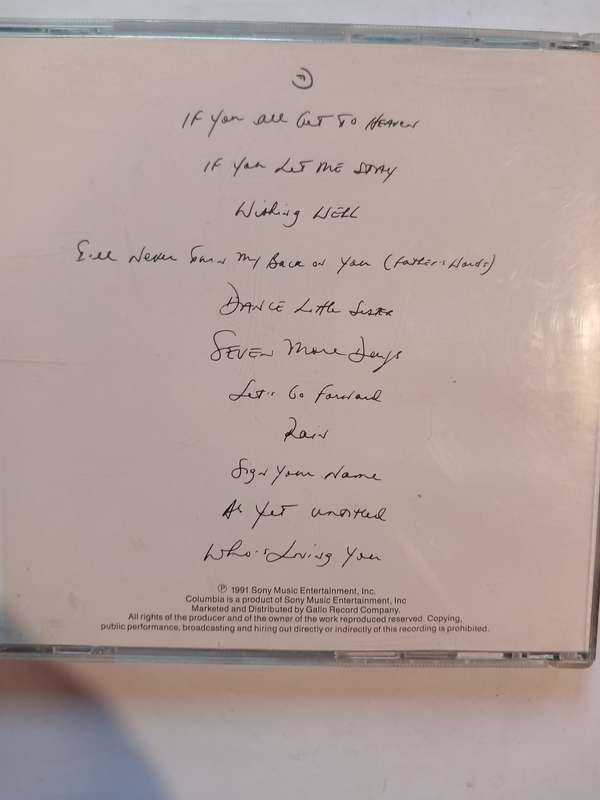 If You All Get To Heaven
If You Let Me Stay
Wishing Well
I'll Never Turn My Back on You (Father's Words)
Dance Little Sister
Seven More Days
Let's Go Forward
Rain
Sign Your Name
As Yet Untitled
Who's Loving You
℗ 1991 Sony Music Entertainment, Inc.
Columbia is a product of Sony Music Entertainment, Inc
Marketed and Distributed by Gallo Record Company.
All rights of the producer and of the owner of the work reproduced reserved. Copying,
public performance, broadcasting and hiring out directly or indirectly of this recording is prohibited.